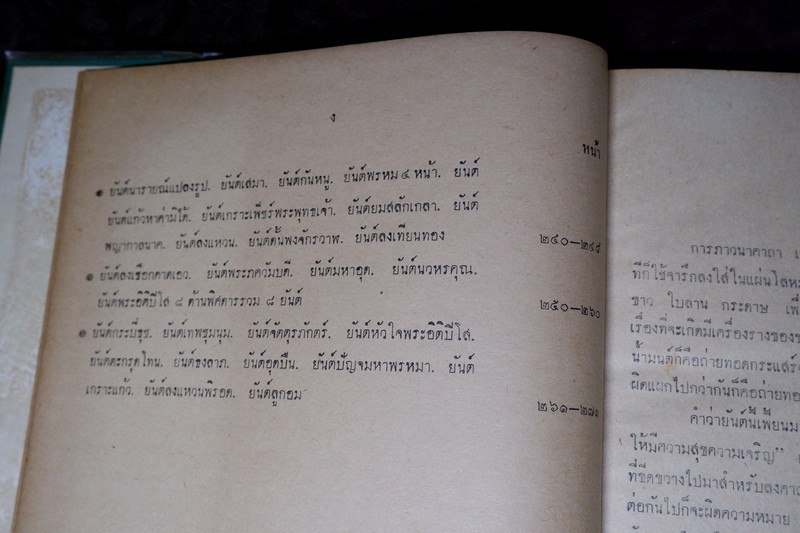 ง
หน้า
● ยันต์นารายณ์แปลงรูป. ยันต์เสมา. ยันต์กันหนู. ยันต์พรหม ๔ หน้า. ยันต์
ยันต์แก้วหาค่ามิได้. ยันต์เกราะเพ็ชร์พระพุทธเจ้า. ยันต์ยมสลักเกลา. ยันต์
พญากาลนาค. ยันต์ลงแหวน. ยันต์ดั้นพงจักรวาพ. ยันต์ลงเทียนทอง ๒๔๐—๒๔๘
● ยันต์ลงเชือกคาดเอว. ยันต์พระภควัมบดี. ยันต์มหาอุด. ยันต์นวหรคุณ.
ยันต์พระอิติปิโส ๘ ด้านพิศดารรวม ๘ ยันต์ ๒๕๐—๒๖๐
● ยันต์กระบี่ธุช. ยันต์เทพชุมนุม. ยันต์จัตุรภักตร์. ยันต์หัวใจพระอิติปิโส.
ยันต์ตะกรุดโทน. ยันต์ธงลาภ. ยันต์อุดปืน. ยันต์ปัญจมหาพรหมา. ยันต์
เกราะแก้ว. ยันต์ลงแหวนพิรอด. ยันต์ลูกอม ๒๖๑—๒๗๑
การภาวนาคาถา
ที่ก็ใช้จารึกลงใส่ในแผ่นโลห
ขาว ใบลาน กระดาษ
เรื่องที่จะเกิดมีเครื่องรางของ
น้ำมนต์ก็คือถ่ายทอดกระแส
ผิดแผกไปกว่ากันก็คือถ่ายทอ
คำว่ายันต์นี้เพี้ยนม
ให้มีความสุขความเจริญ"
ที่ขีดขวางไปมาสำหรับลงคา
ต่อกันไปก็จะผิดความหมาย